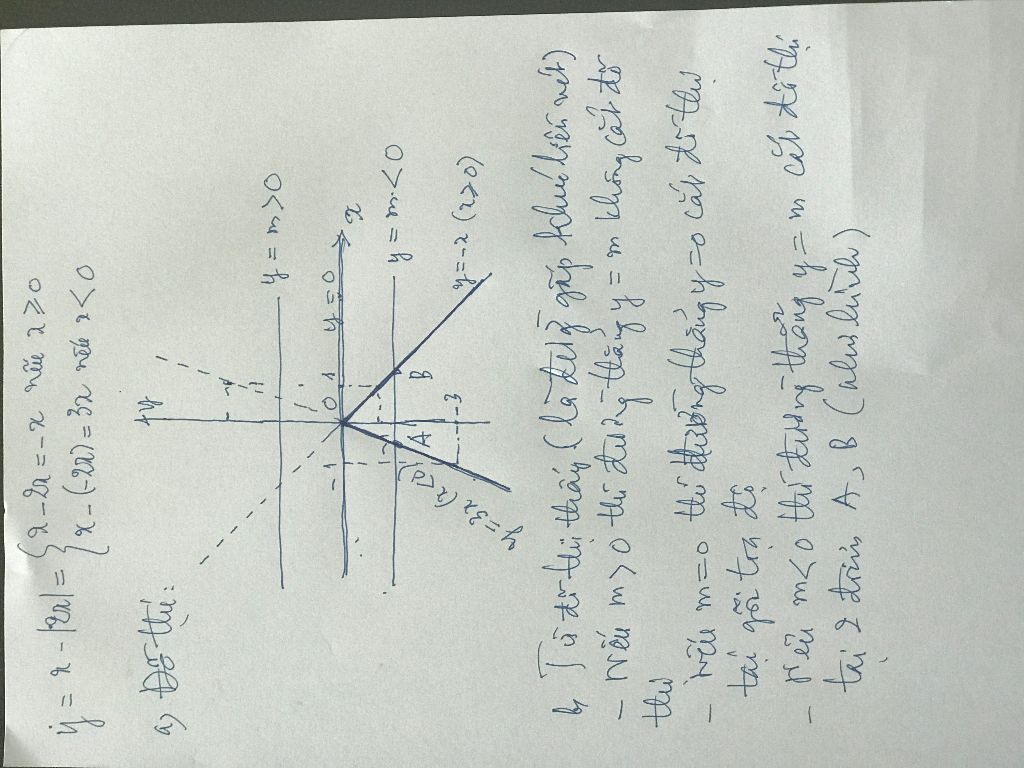 y = x - |2x| = { x - 2x = -x nếu x ≥ 0
{ x - (-2x) = 3x nếu x < 0
a) Đồ thị:
y
y = m > 0
-1 0 1 y = 0 x
A B y = m < 0
-3
y = 3x (x
y = -x (x ≥ 0)
b, Từ đồ thị thấy (là đường gấp khúc liền nét)
- Nếu m > 0 thì đường thẳng y = m không cắt đồ
thị
- Nếu m = 0 thì đường thẳng y = 0 cắt đồ thị
tại gốc toạ độ
- Nếu m < 0 thì đường thẳng y = m cắt đồ thị
tại 2 điểm A, B (như hình)